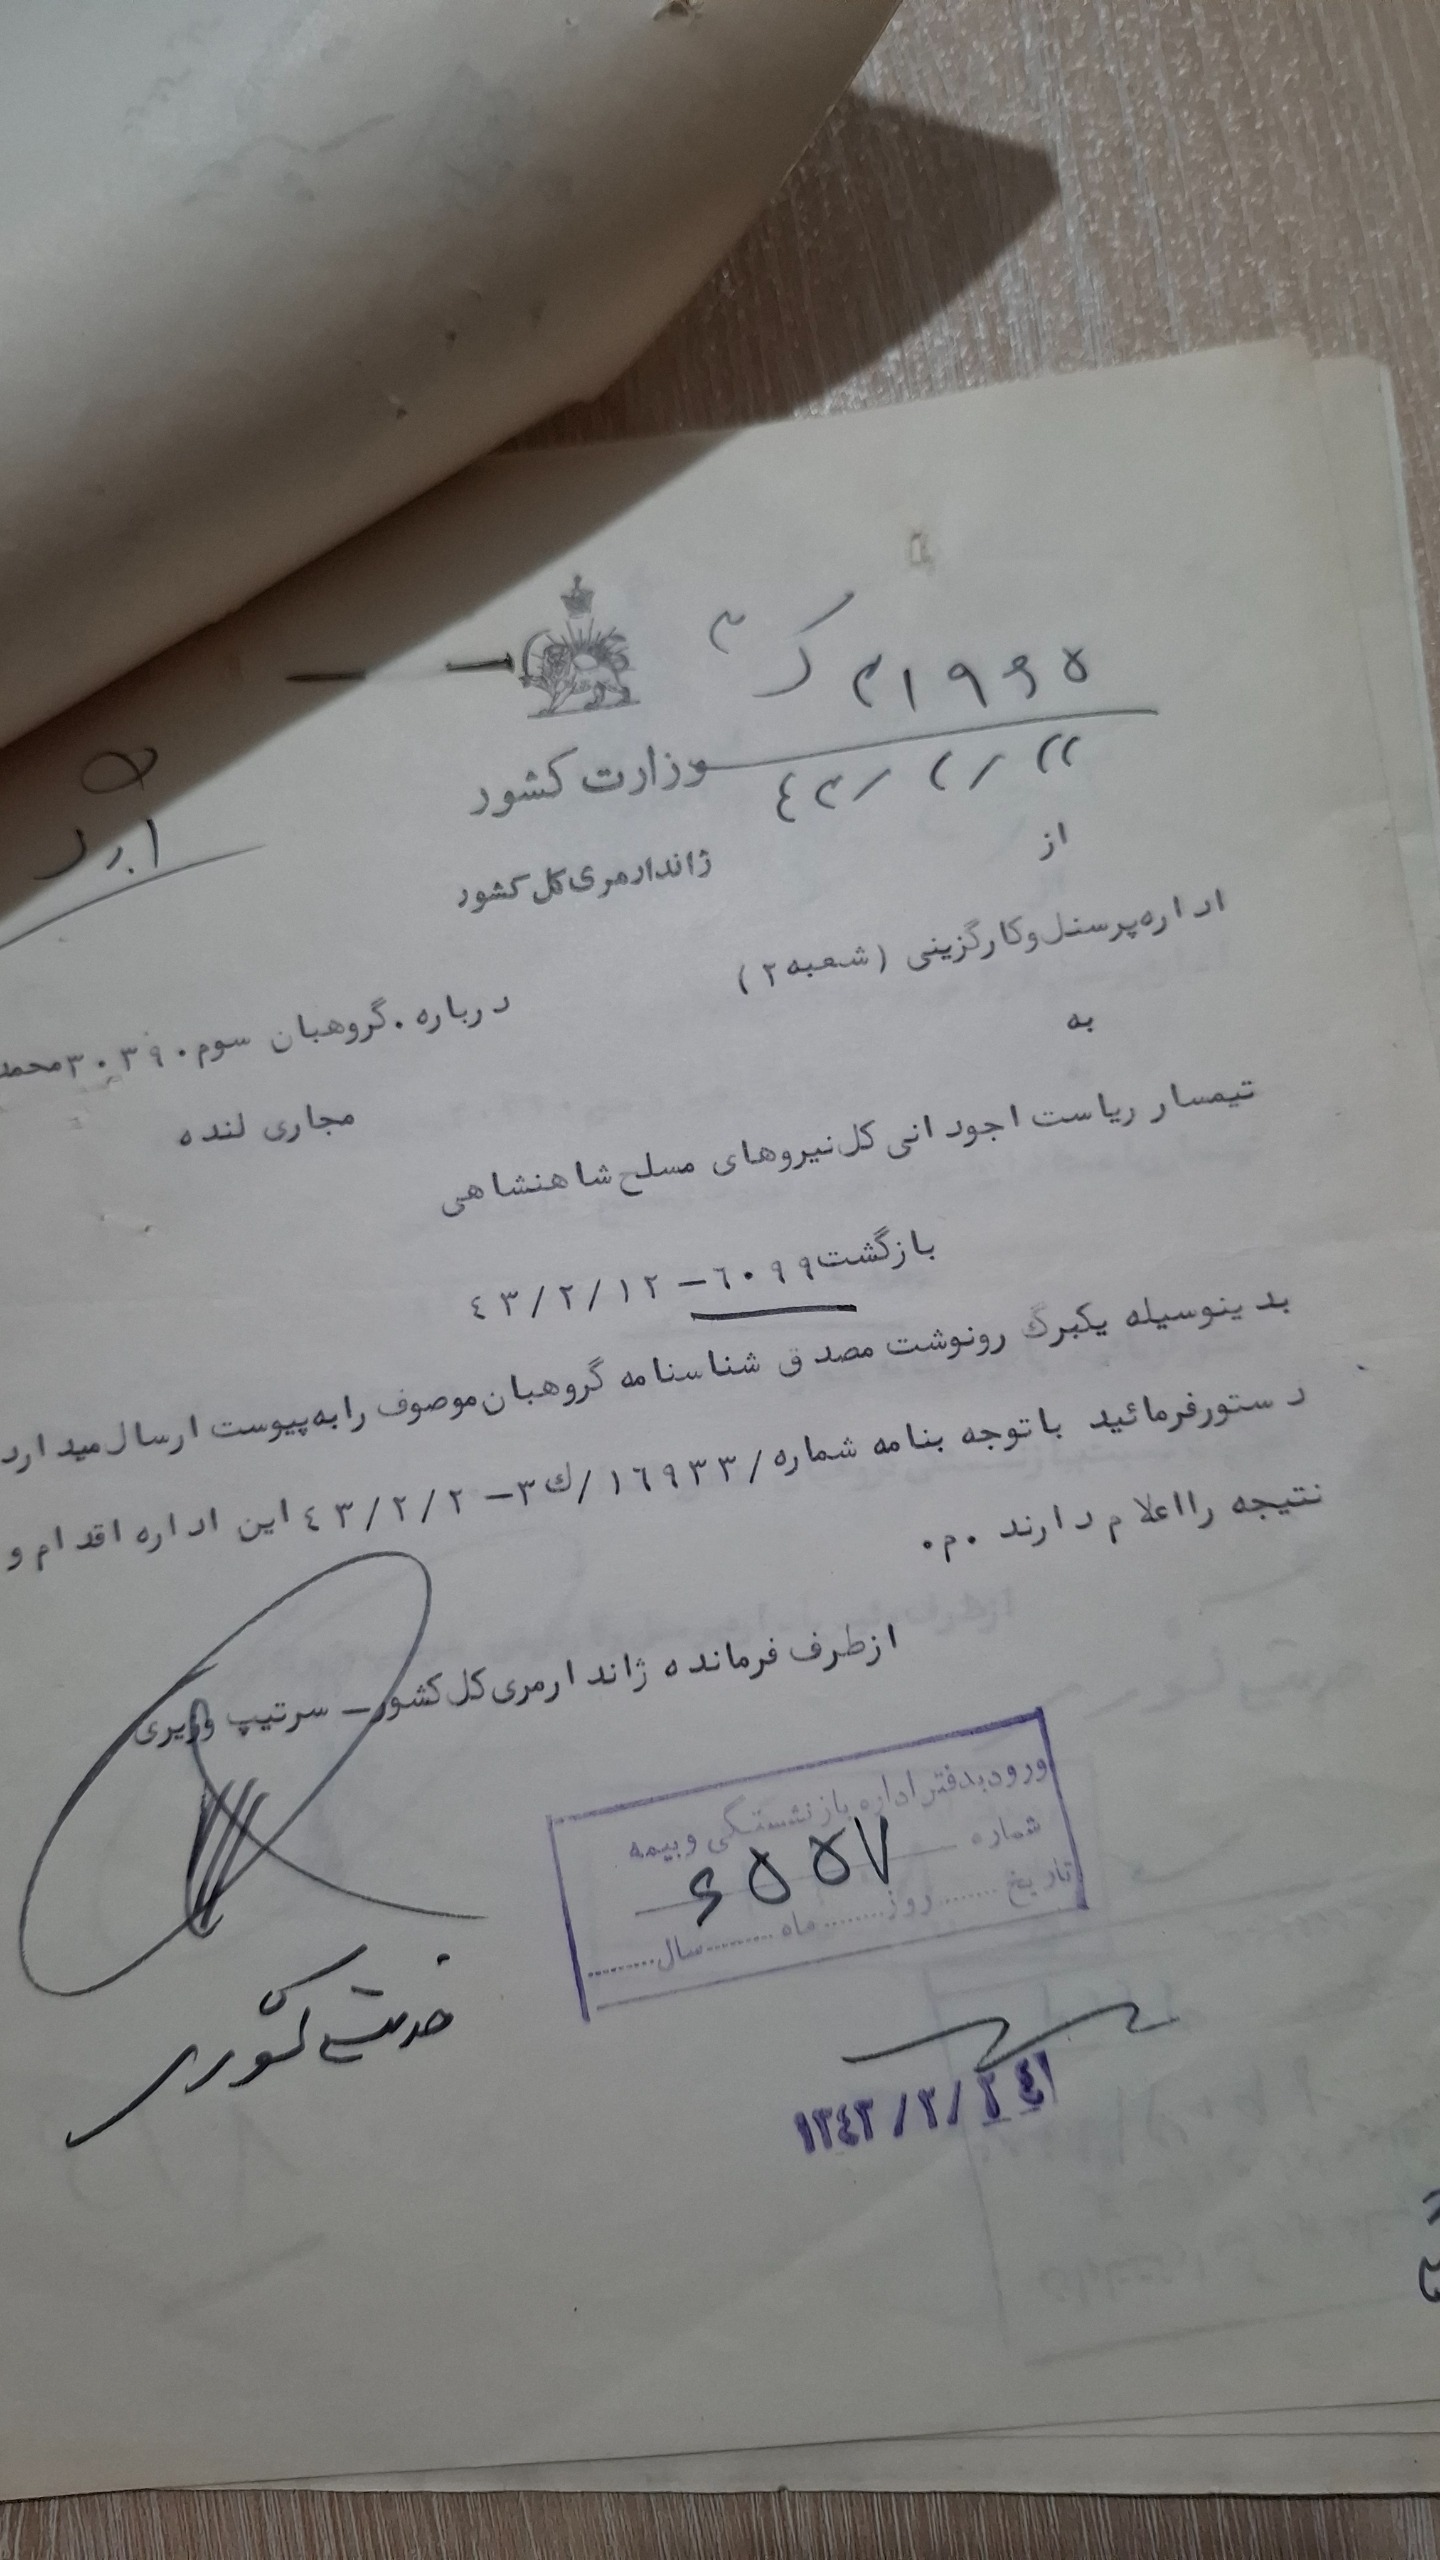 وزارت کشور
ژاندارمری کل کشور
۴۳/۲/۲۲
از
اداره پرسنل و کارگزینی (شعبه ۲)
درباره . گروهبان سوم ۳۰۳۹۰ محمد
مجاری لنده
به
تیمسار ریاست اجودانی کل نیروهای مسلح شاهنشاهی
بازگشت ۶۰۹۹ – ۴۳/۲/۱۲
بدینوسیله یکبرگ رونوشت مصدق شناسنامه گروهبان موصوف را به پیوست ارسال میدارد
دستور فرمائید باتوجه بنامه شماره /۱۶۹۳۳/ک۳ – ۴۳/۲/۲ این اداره اقدام و
نتیجه را اعلام دارند .م.
از طرف فرمانده ژاندارمری کل کشور – سرتیپ وزیری
ورود بدفتر اداره بازنشستگی و بیمه
شماره ۶۵۵۷
تاریخ ........ روز ........ ماه ........ سال ........